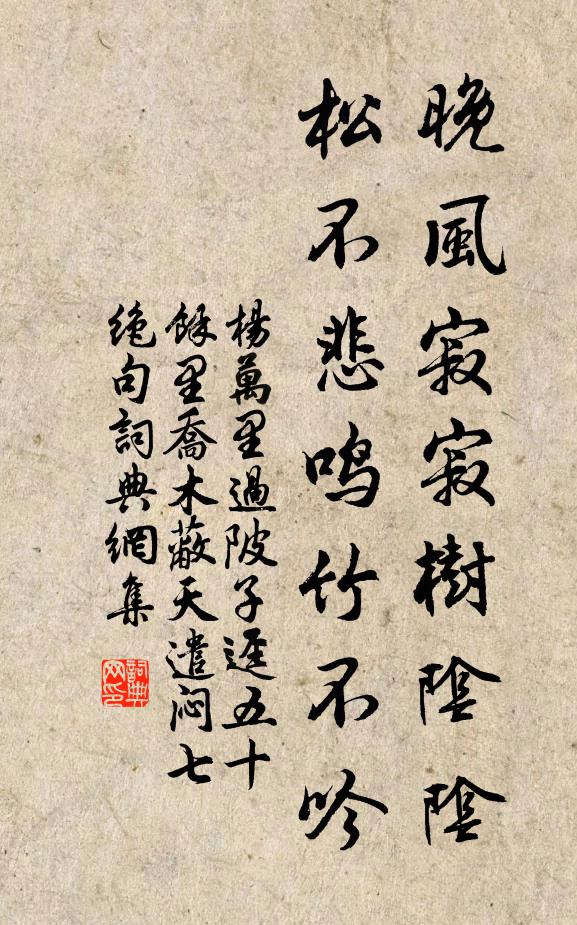 晚風寂寂樹陰陰
松不悲鳴竹不吟
楊萬里過陂子逕五十
餘里喬木蔽天遣闷七
絶句詞典網集
詞典网印